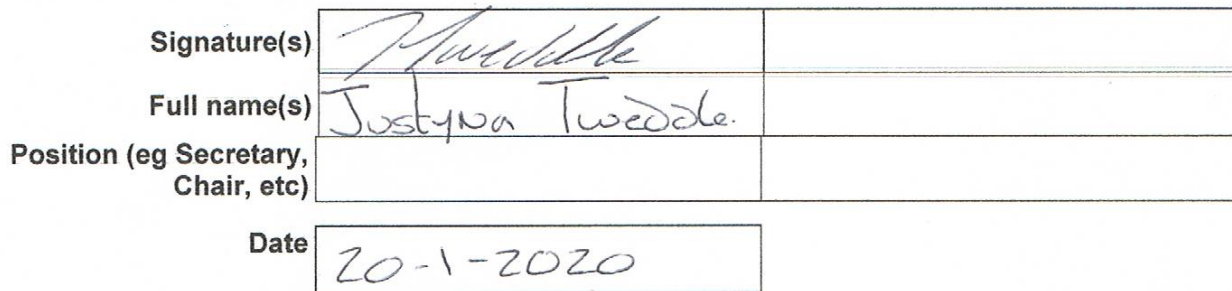 Signature(s)
Full name(s) Justyna Tweddle.
Position (eg Secretary,
Chair, etc)
Date 20-1-2020